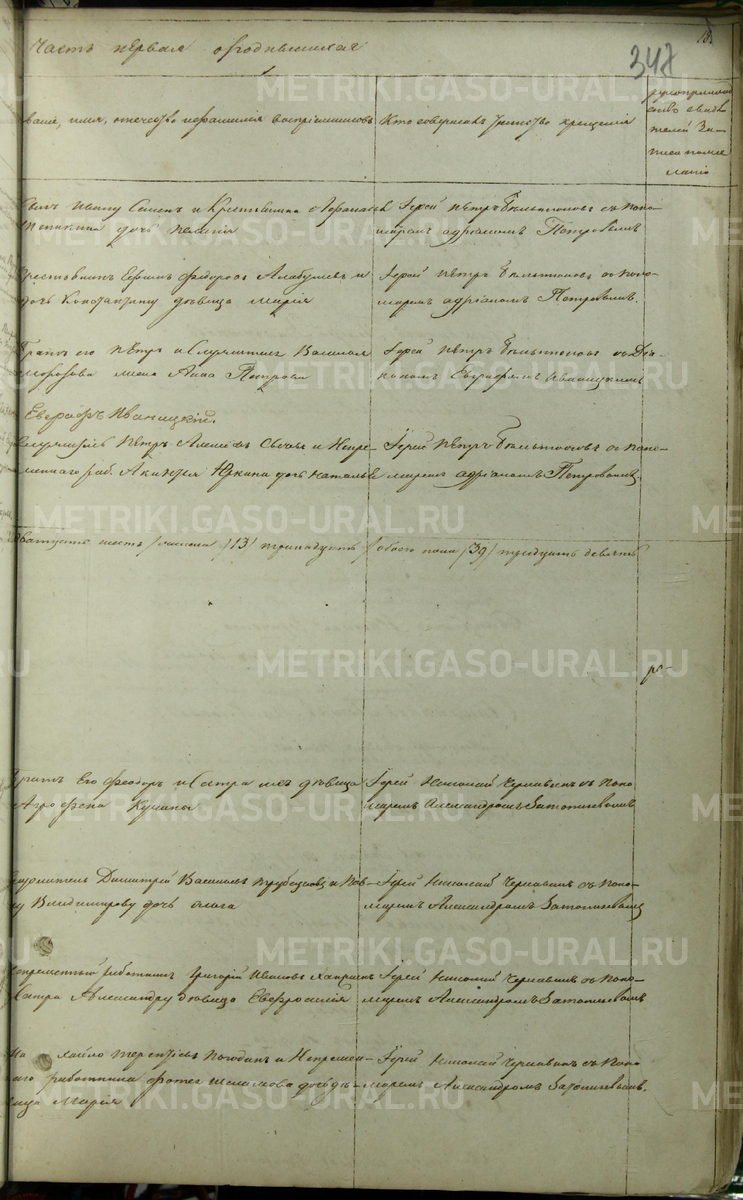 Часть первая о родившихся
347
звание, имя, отечество и фамилия восприемниковъ
Кто совершалъ таинство крещенія
рукоприкладство
свидѣ-
телей за-
писи по же-
ланію
Семенъ и Крестьянина
дочь
Іерей Петръ съ поно-
маремъ Адріаномъ Петровымъ
Крестьянинъ Ефимъ Федоровъ Алабушевъ и
дочь Константину дѣвица Марія
Іерей Петръ съ поно-
маремъ Адріаномъ Петровымъ.
Братъ его Петръ и Служителя Василья
Морозова жена Анна Петрова
Іерей Петръ съ Діа-
кономъ Евграфомъ Иваницкимъ
Евграфъ Иваницкій.
Служитель Петръ Алексѣевъ и Непре-
меннаго раб. Юркина дочь Наталья
Іерей Петръ съ поно-
маремъ Адріаномъ Петровымъ.
двадцать шесть /женска /13/ тринадцать /обоего пола /39/ тридцать девять
Братъ Его Феодоръ и Сестра дѣвица
Агрофена
Іерей Николай Чернавинъ съ Поно-
маремъ Александромъ Затопляевымъ
Служитель Димитрій Васильевъ Трубецковъ и
Владимирову дочь Ольга
Іерей Николай Чернавинъ съ Поно-
маремъ Александромъ Затопляевымъ
Непременный работникъ Григорій Ивановъ и
Сестра Александру дѣвица Евфросинія
Іерей Николай Чернавинъ съ Поно-
маремъ Александромъ Затопляевымъ
Михайло Терентьевъ Погодинъ и Непремен-
наго работника дочь дѣ-
вица Марія
Іерей Николай Чернавинъ съ Поно-
маремъ Александромъ Затопляевымъ.
METRIKI.GASO-URAL.RU